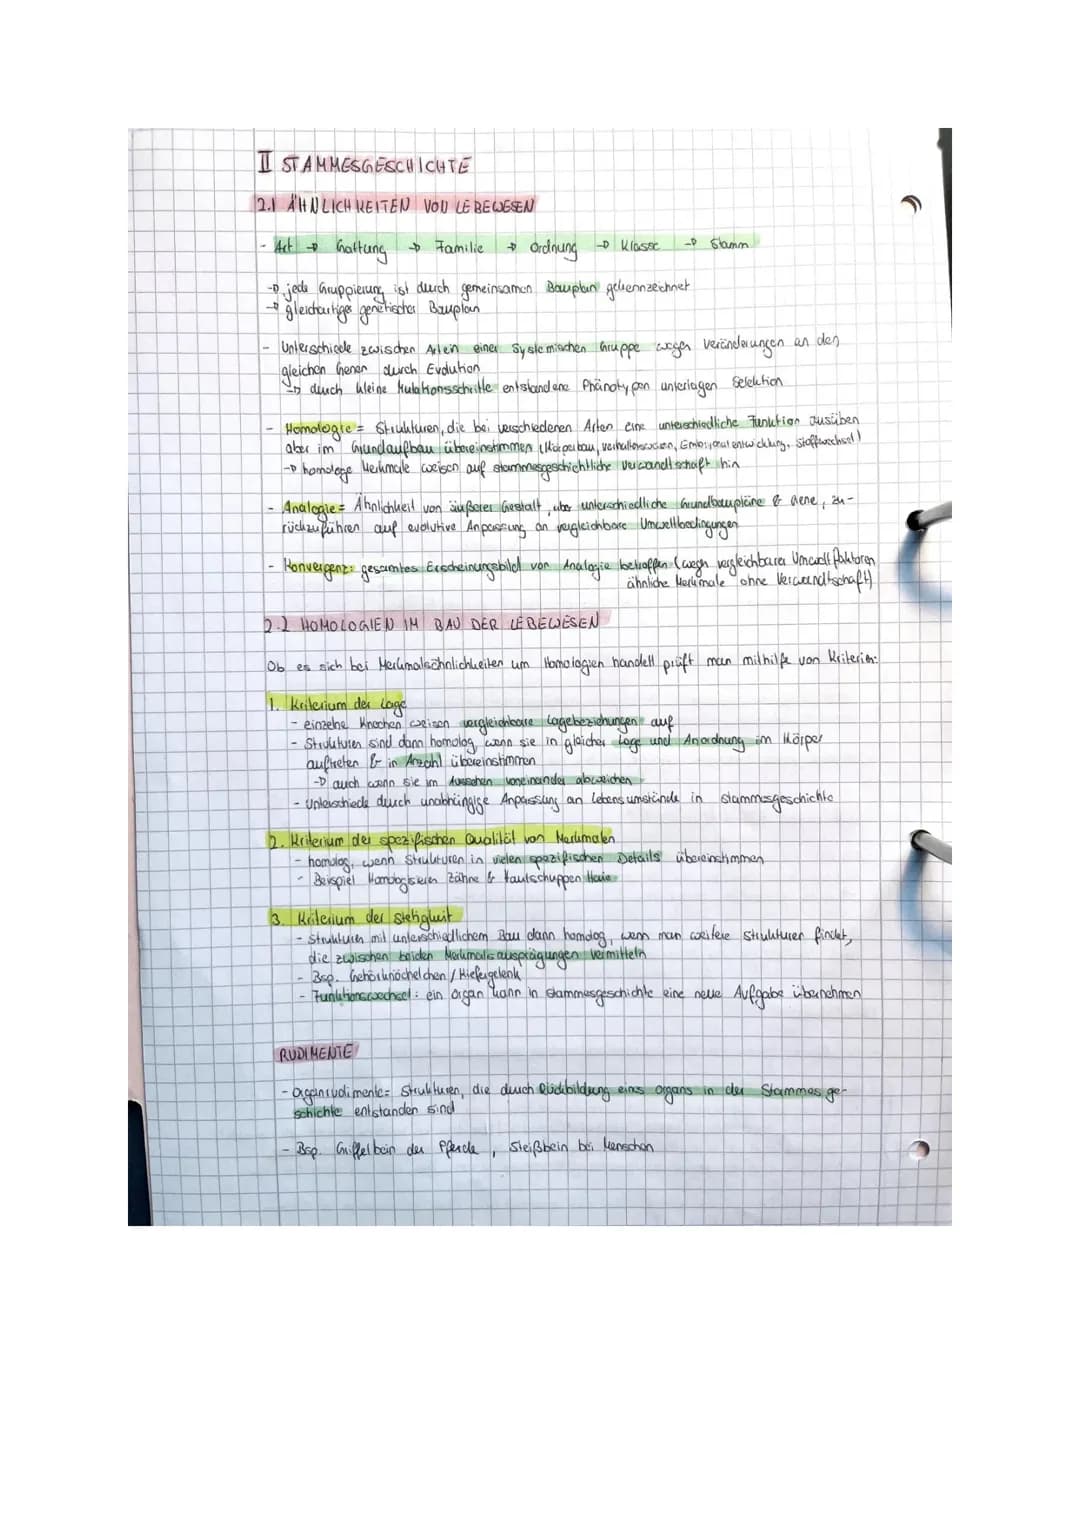 II STAMMESGESCHICHTE
2.1 ÄHNLICHKEITEN VON LEBEWESEN
- Art → Gattung → Familie → Ordnung → Klasse → Stamm
→ jede Gruppierung ist durch gemeinsamen Bauplan gekennzeichnet
→ gleichartiger genetischer Bauplan
- Unterschiede zwischen Arten einer Systemischen Gruppe wegen Veränderungen an den
gleichen Genen durch Evolution
↳ durch kleine Mutationsschritte entstandene Phänotypen unterlagen Selektion
- Homologie = Strukturen, die bei verschiedenen Arten eine unterschiedliche Funktion ausüben
aber im Grundaufbau übereinstimmen (Körperbau, verhaltensweisen, Embryonalentwicklung, Stoffwechsel)
→ homologe Merkmale weisen auf stammesgeschichtliche Verwandtschaft hin
- Analogie = Ähnlichkeit von äußerer Gestalt, aber unterschiedliche Grundbaupläne & Gene, zu-
rückzuführen auf evolutive Anpassung an vergleichbare Umweltbedingungen
- Konvergenz: gesamtes Erscheinungsbild von Analogie betroffen (wegn vergleichbarer Umwelt faktoren
ähnliche Merkmale ohne Verwandtschaft)
2.2 HOMOLOGIEN IM BAU DER LEBEWESEN
Ob es sich bei Merkmalsähnlichkeiten um Homologien handelt prüft man mithilfe von Kriterien:
1. Kriterium der Lage
- einzelne Knochen weisen vergleichbare Lagebeziehungen auf
- Strukturen sind dann homolog, wenn sie in gleicher Lage und Anordnung im Körper
auftreten & in Anzahl übereinstimmen
→ auch wenn sie im Aussehen voneinander abweichen
- Unterschiede durch unabhängige Anpassung an Lebensumstände in stammesgeschichte
2. Kriterium der spezifischen Qualität von Merkmalen
- homolog, wenn Strukturen in vielen spezifischen Details übereinstimmen
- Beispiel Homologisieren Zähne & Hautschuppen Haie
3. Kriterium der Stetigkeit
- Strukturen mit unterschiedlichem Bau dann homolog, wenn man weitere Strukturen findet,
die zwischen beiden Merkmalsausprägungen vermitteln
- Bsp. Gehörknöchelchen / Kiefergelenk
- Funktionswechsel: ein Organ kann in Stammesgeschichte eine neue Aufgabe übernehmen
RUDIMENTE
- Organrudimente = Strukturen, die durch Rückbildung eines Organs in der Stammesge-
schichte entstanden sind
- Bsp. Griffelbein der Pferde, Steißbein bei Menschen